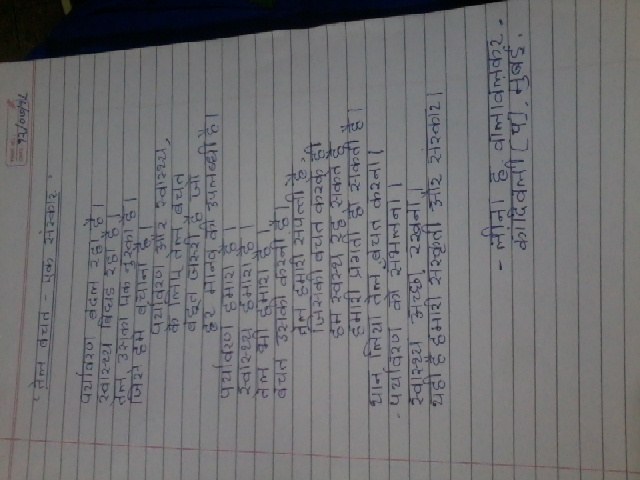 "तेल बचत - एक संस्कार"
पर्यावरण बदल रहा है।
स्वास्थ्य बिघड रहा है।
तेल उसका एक नुस्का है।
जिसे हमे बचाना है।
पर्यावरण और स्वास्थ्य,
के लिए तेल बचत
बहूत जरुरी है जो
हर मानव की उपलब्धी है।
पर्यावरण हमारा है।
स्वास्थ्य हमारा है।
तेल भी हमारा है।
बचत उसकी करनी है।
तेल हमारी संपत्ती है,
जिसकी बचत करके ही
हम स्वस्थ रह सकते है
हमारी प्रगती हो सकती है।
ठान लिया तेल बचत करना।
- पर्यावरण को संभलना।
स्वास्थ्य अच्छा रखना,
यही है हमारी संस्कृती और संस्कार।
- लीना है. वालावलकर -
कांदिवली [प], मुंबई.